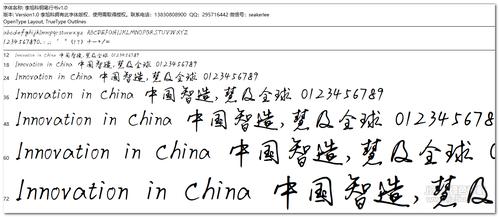 字体名称: 李旭科钢笔行书v1.0
版本: Version1.0 李旭科拥有此字体版权，使用需取得授权。联系电话：13830808900 QQ：295716442 微信号：seakerlee
OpenType Layout, TrueType Outlines
abcdefghijklmnopqrstuvwxyz ABCDEFGHIJKLMNOPQRSTUVWXYZ
12 Innovation in China 中国智造，慧及全球 0123456789
18 Innovation in China 中国智造，慧及全球 0123456789
24 Innovation in China 中国智造，慧及全球 0123456789
36 Innovation in China 中国智造，慧及全球 0123456789
48 Innovation in China 中国智造，慧及全球 012345678
60 Innovation in China 中国智造，慧及全球
72 Innovation in China 中国智造，慧及